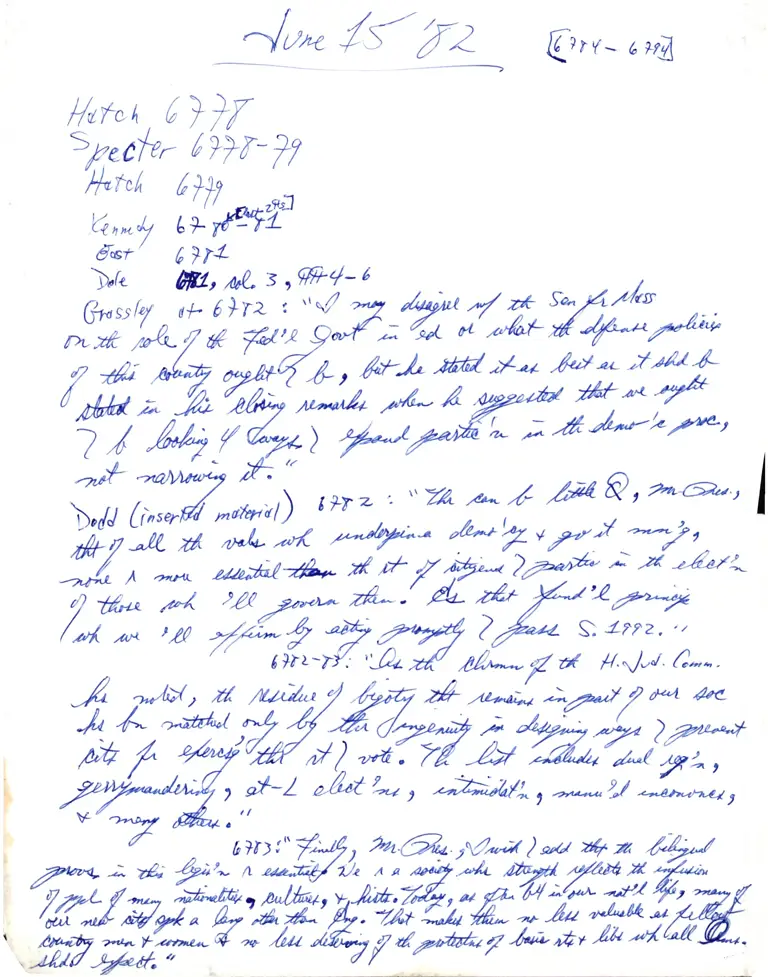 June 15 '82 [6784 – 6794]
Hatch 6778
Specter 6778–79
Hatch 6779
Kennedy 6780–81
East 6781
Dole 6781, col. 3, ¶¶ 4–6
Grassley at 6782 : "I may disagree w/ th Sen fr Mass
on th role of th Fed'l Govt in ed or what th defense policies
of this country ought 2 b, but he stated it as best as it shd b
stated in his closing remarks when he suggested that we ought
2 b looking 4 ways 2 expand partic'n in th demo'c proc,
not narrowing it."
Dodd (inserted material) 6782 : "Thr can b little Q, Mr. Pres.,
tht of all th vals wh underpin a demo'cy & gv it mn'g,
none r more essential than th rt of citizens 2 partic in th elect'n
of those wh 'll govern them. It's that fund'l princip
wh we 'll affirm by acting promptly 2 pass S. 1992."
6782–83: "As th chrmn of th H. Jud. Comm.
hs noted, th residue of bigoty tht remains in part of our soc
hs bn matched only by thr ingenuity in designing ways 2 prevent
cits fr exercs'g thr rt 2 vote. Th list includes dual reg'n,
gerrymandering, at-L elect'ns, intimidat'n,
& many others."
6783: "Finally, Mr. Pres., I wish 2 add tht th bilingual
provs in this legis'n r essential. We r a society whs strength reflects th infusion
of ppl of many nationalities, cultures, & hists. Today, as ofn b4 in our nat'l life, many of
our new cits spk a lang other than Eng. That makes them no less valuable as fellow
country men & women & no less deserving of th protectns of basic rts & libs wh all Ams.
shd expect."